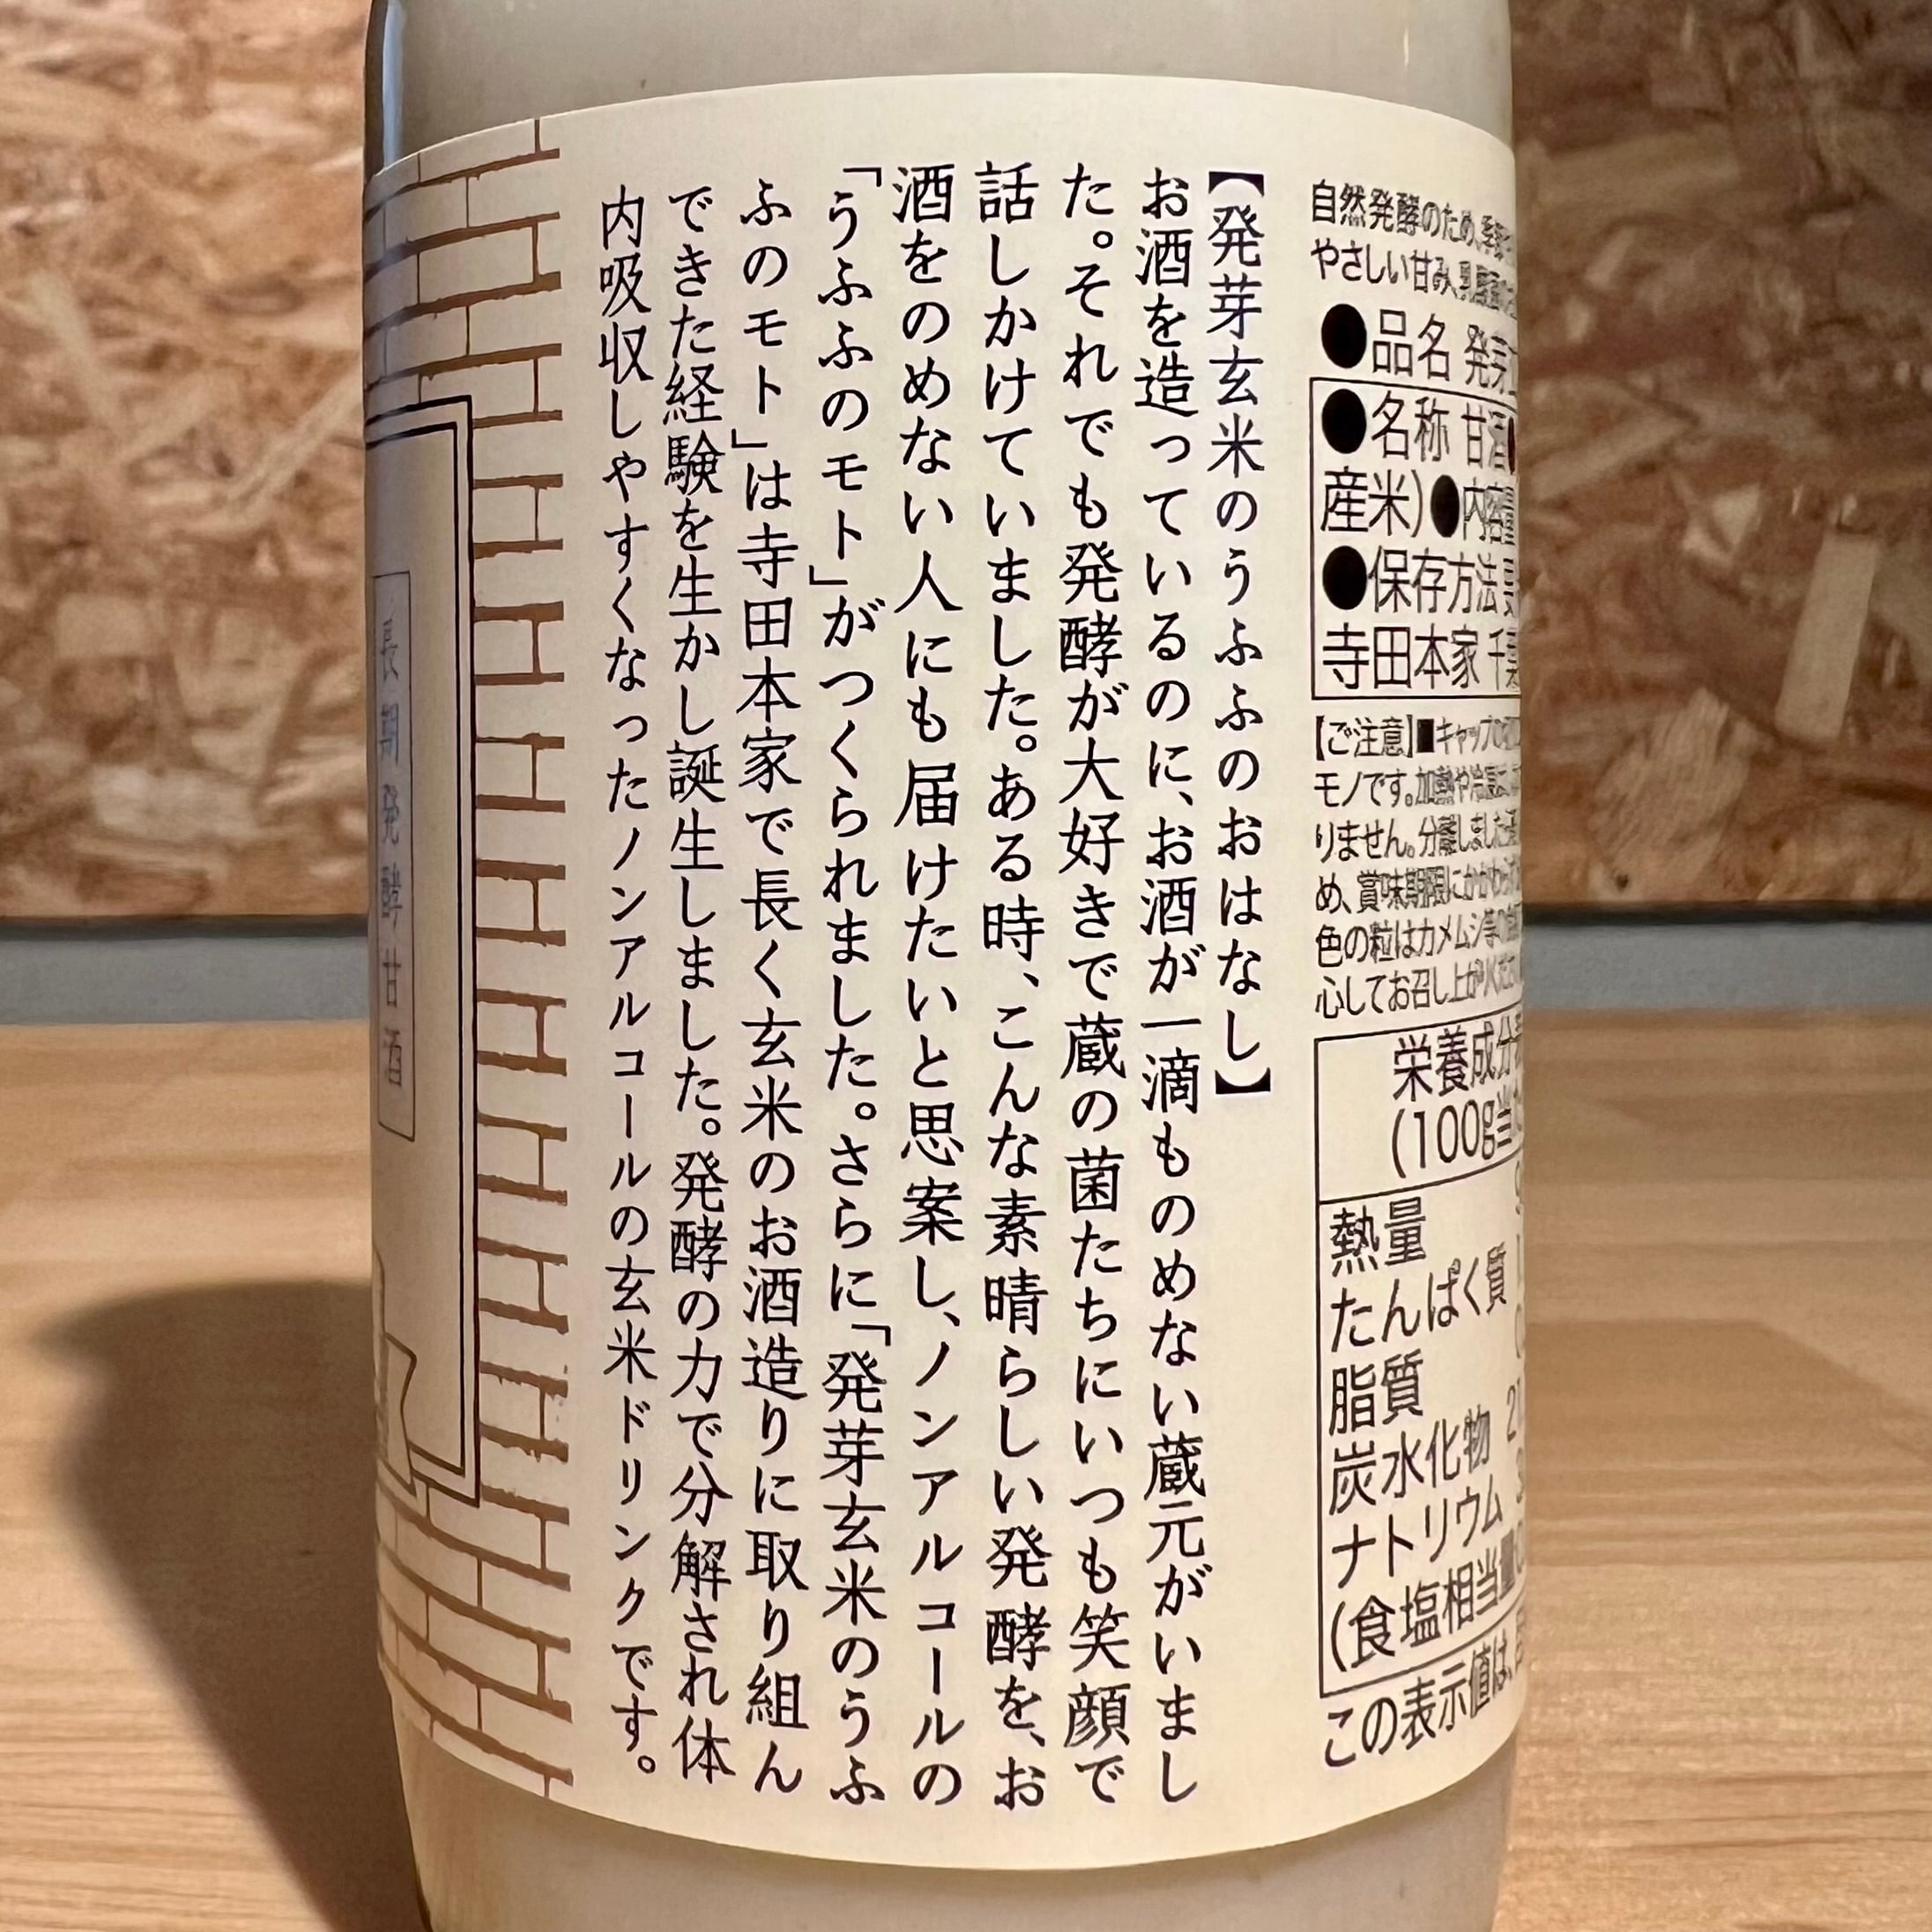 自然発酵のため、季節
やさしい甘み、乳酸
●品名 発芽
●名称 甘酒
産米)●内容量
●保存方法
寺田本家 千葉
【ご注意】■キャップ
モノです。加熱や冷
りません。分離しました
め、賞味期限にかかわらず
色の粒はカメムシ等の
心してお召し上がり
栄養成分表
(100g当た
熱量
たんぱく質
脂質
炭水化物
ナトリウム
(食塩相当量
この表示値は、
【発芽玄米のうふふのおはなし】
お酒を造っているのに、お酒が一滴ものめない蔵元がいまし
た。それでも発酵が大好きで蔵の菌たちにいつも笑顔で
話しかけていました。ある時、こんな素晴らしい発酵を、お
酒をのめない人にも届けたいと思案し、ノンアルコールの
「うふふのモト」がつくられました。さらに「発芽玄米のうふ
ふのモト」は寺田本家で長く玄米のお酒造りに取り組ん
できた経験を生かし誕生しました。発酵の力で分解され体
内吸収しやすくなったノンアルコールの玄米ドリンクです。
長期発酵甘酒